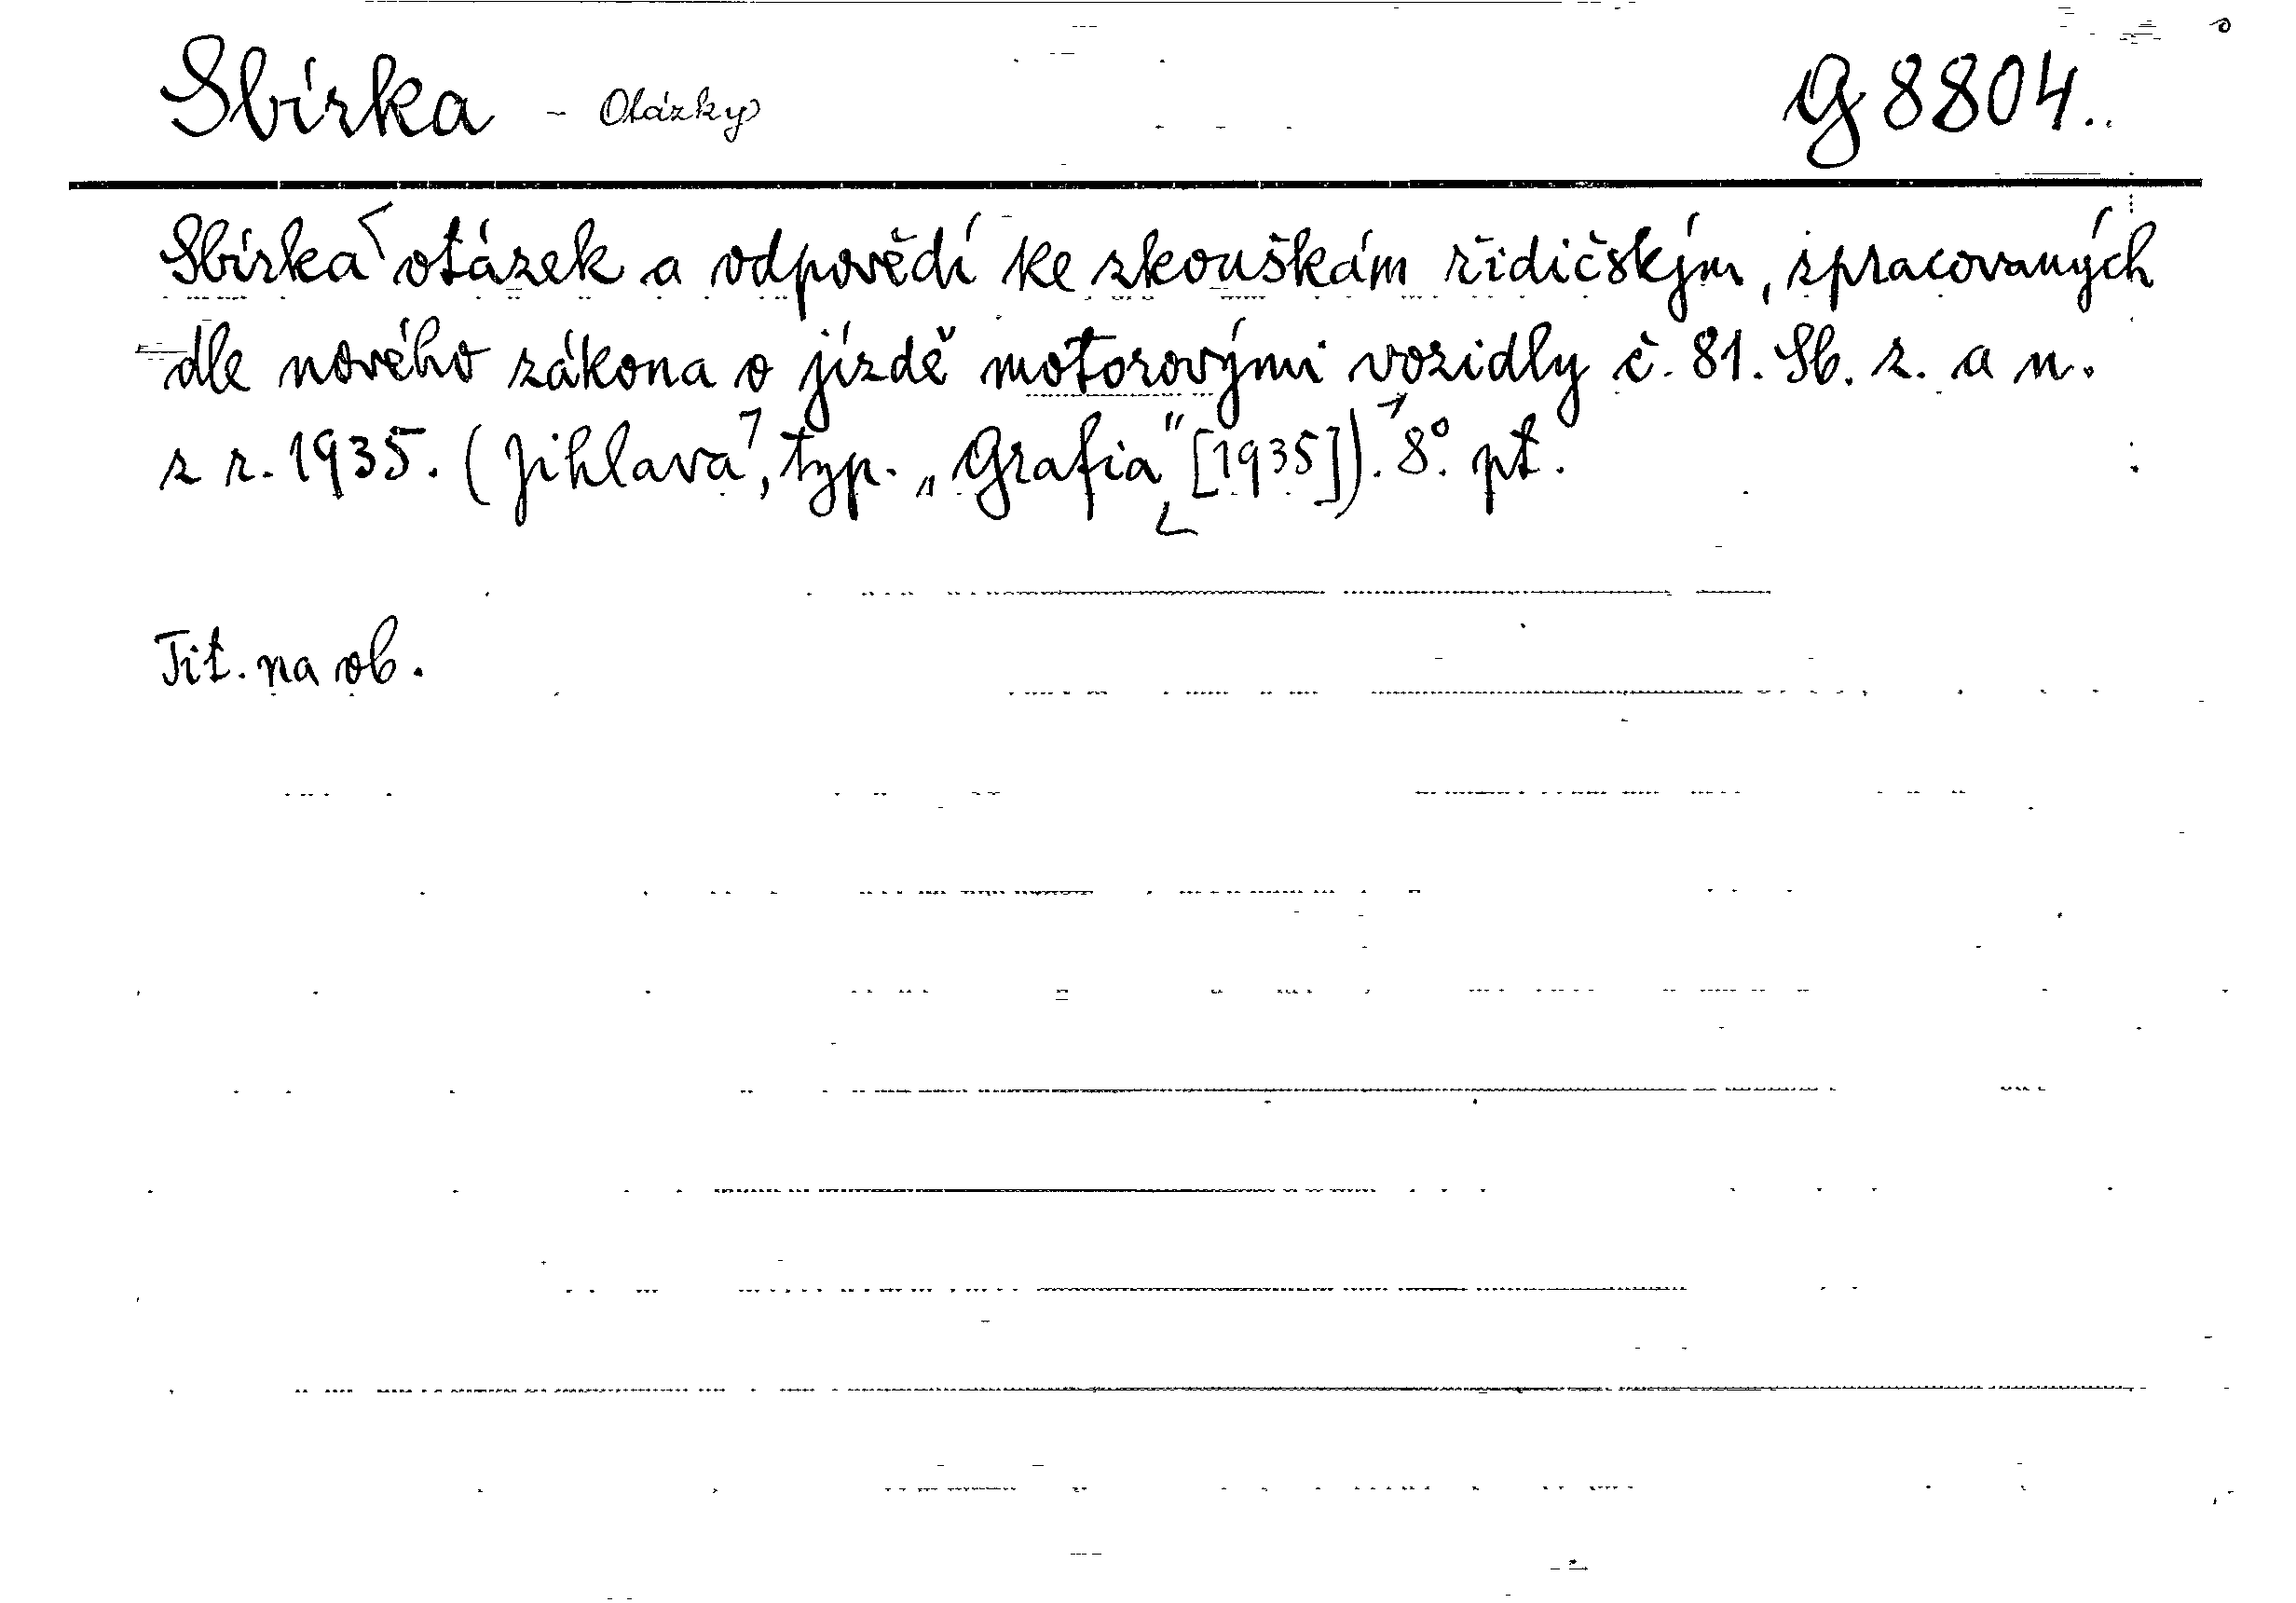 Sbírka - Otázky G 8804.
Sbírka otázek a odpovědí ke zkouškám řidičským, zpracovaných
dle nového zákona o jízdě motorovými vozidly č. 81. Sb. z. a n.
z r. 1935. (Jihlava, typ. „Grafia" [1935]). 8°. pt.
Tit. na ob.